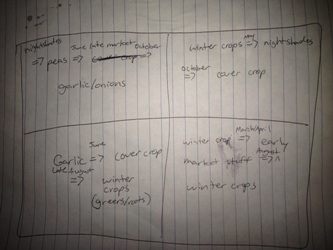 nightshades
June late market October
=> peas => =>
garlic/onions
winter crops => nightshades
October
=> cover crop
June
Garlic => cover crop
Late August
=> winter
crops
(greens/roots)
winter crop => early
August
market stuff =>
winter crops